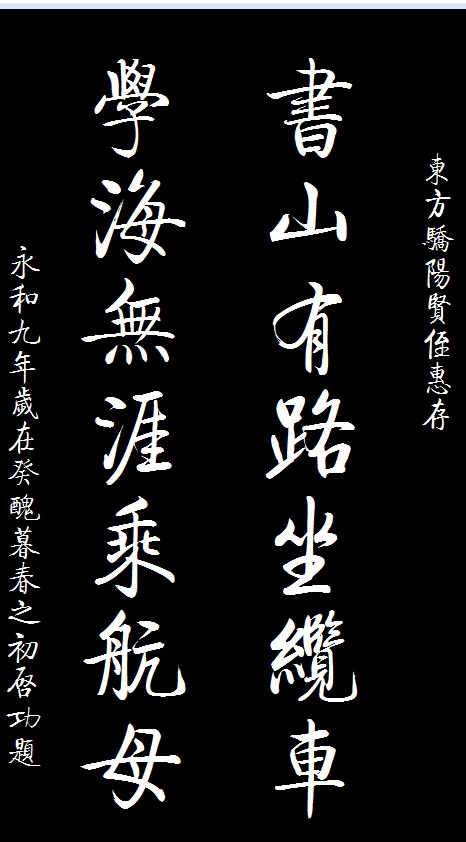 東方驕陽賢侄惠存
書山有路坐纜車
學海無涯乘航母
永和九年歲在癸醜暮春之初啓功題